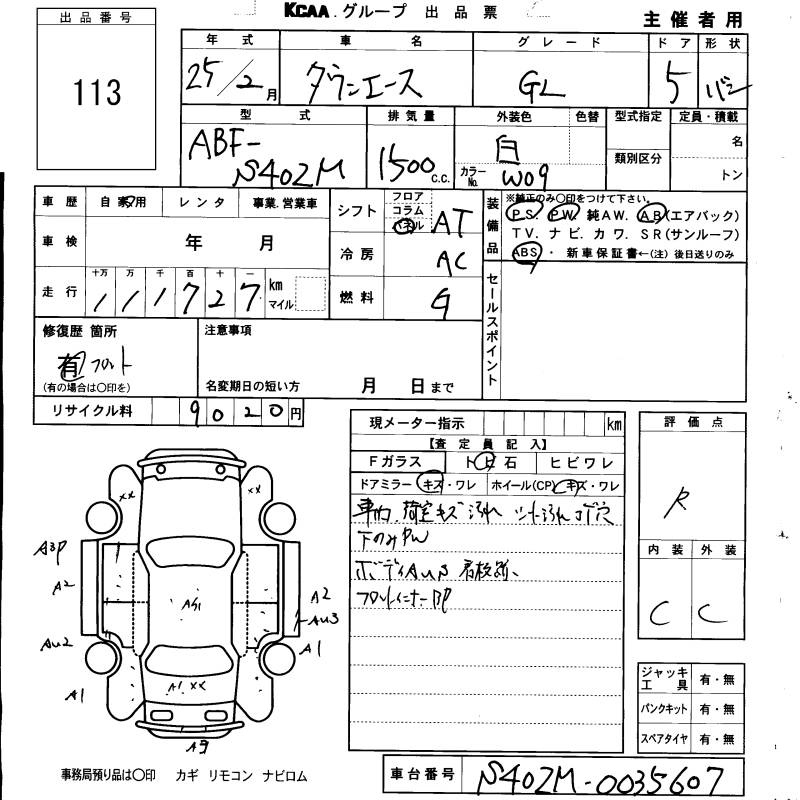 KCAA.グループ 出品票
主催者用
出品番号
113
年式 車名 グレード ドア 形状
25/2月 タウンエース GL 5 バン
型式 排気量 外装色 色替 型式指定 定員・積載
ABF-
S402M 1500 c.c. 白 名
カラーNo. W09 類別区分 トン
車歴 自家用 レンタ 事業.営業車
シフト フロア コラム パネル AT
装備品 ※純正のみ〇印をつけて下さい。
PS PW 純AW. AB(エアバック)
TV. ナビ. カワ. SR(サンルーフ)
ABS・新車保証書←(注)後日送りのみ
車検 年 月
冷房 AC
走行 十万 万 千 百 十 一
111727 km マイル
燃料 G
セールスポイント
修復歴 箇所 注意事項
有 フロント
(有の場合は〇印を) 名変期日の短い方 月 日まで
リサイクル料 9020円
現メーター指示 km
評価点
R
【査定員記入】
Fガラス トビ石 ヒビワレ
ドアミラー キズ・ワレ ホイール(CP) キズ・ワレ
車内.荷室キズ汚れ シート汚れ コゲ穴
下のみPW
ボディAUS 看板跡、
フロントインナーBP
内装 外装
C C
xx xx
A3P
A2
AS1
A2
AU3
AU2
A1
A1
A1 xx
A9
ジャッキ工具 有・無
パンクキット 有・無
スペアタイヤ 有・無
事務局預り品は〇印 カギ リモコン ナビロム
車台番号 S402M-0035607